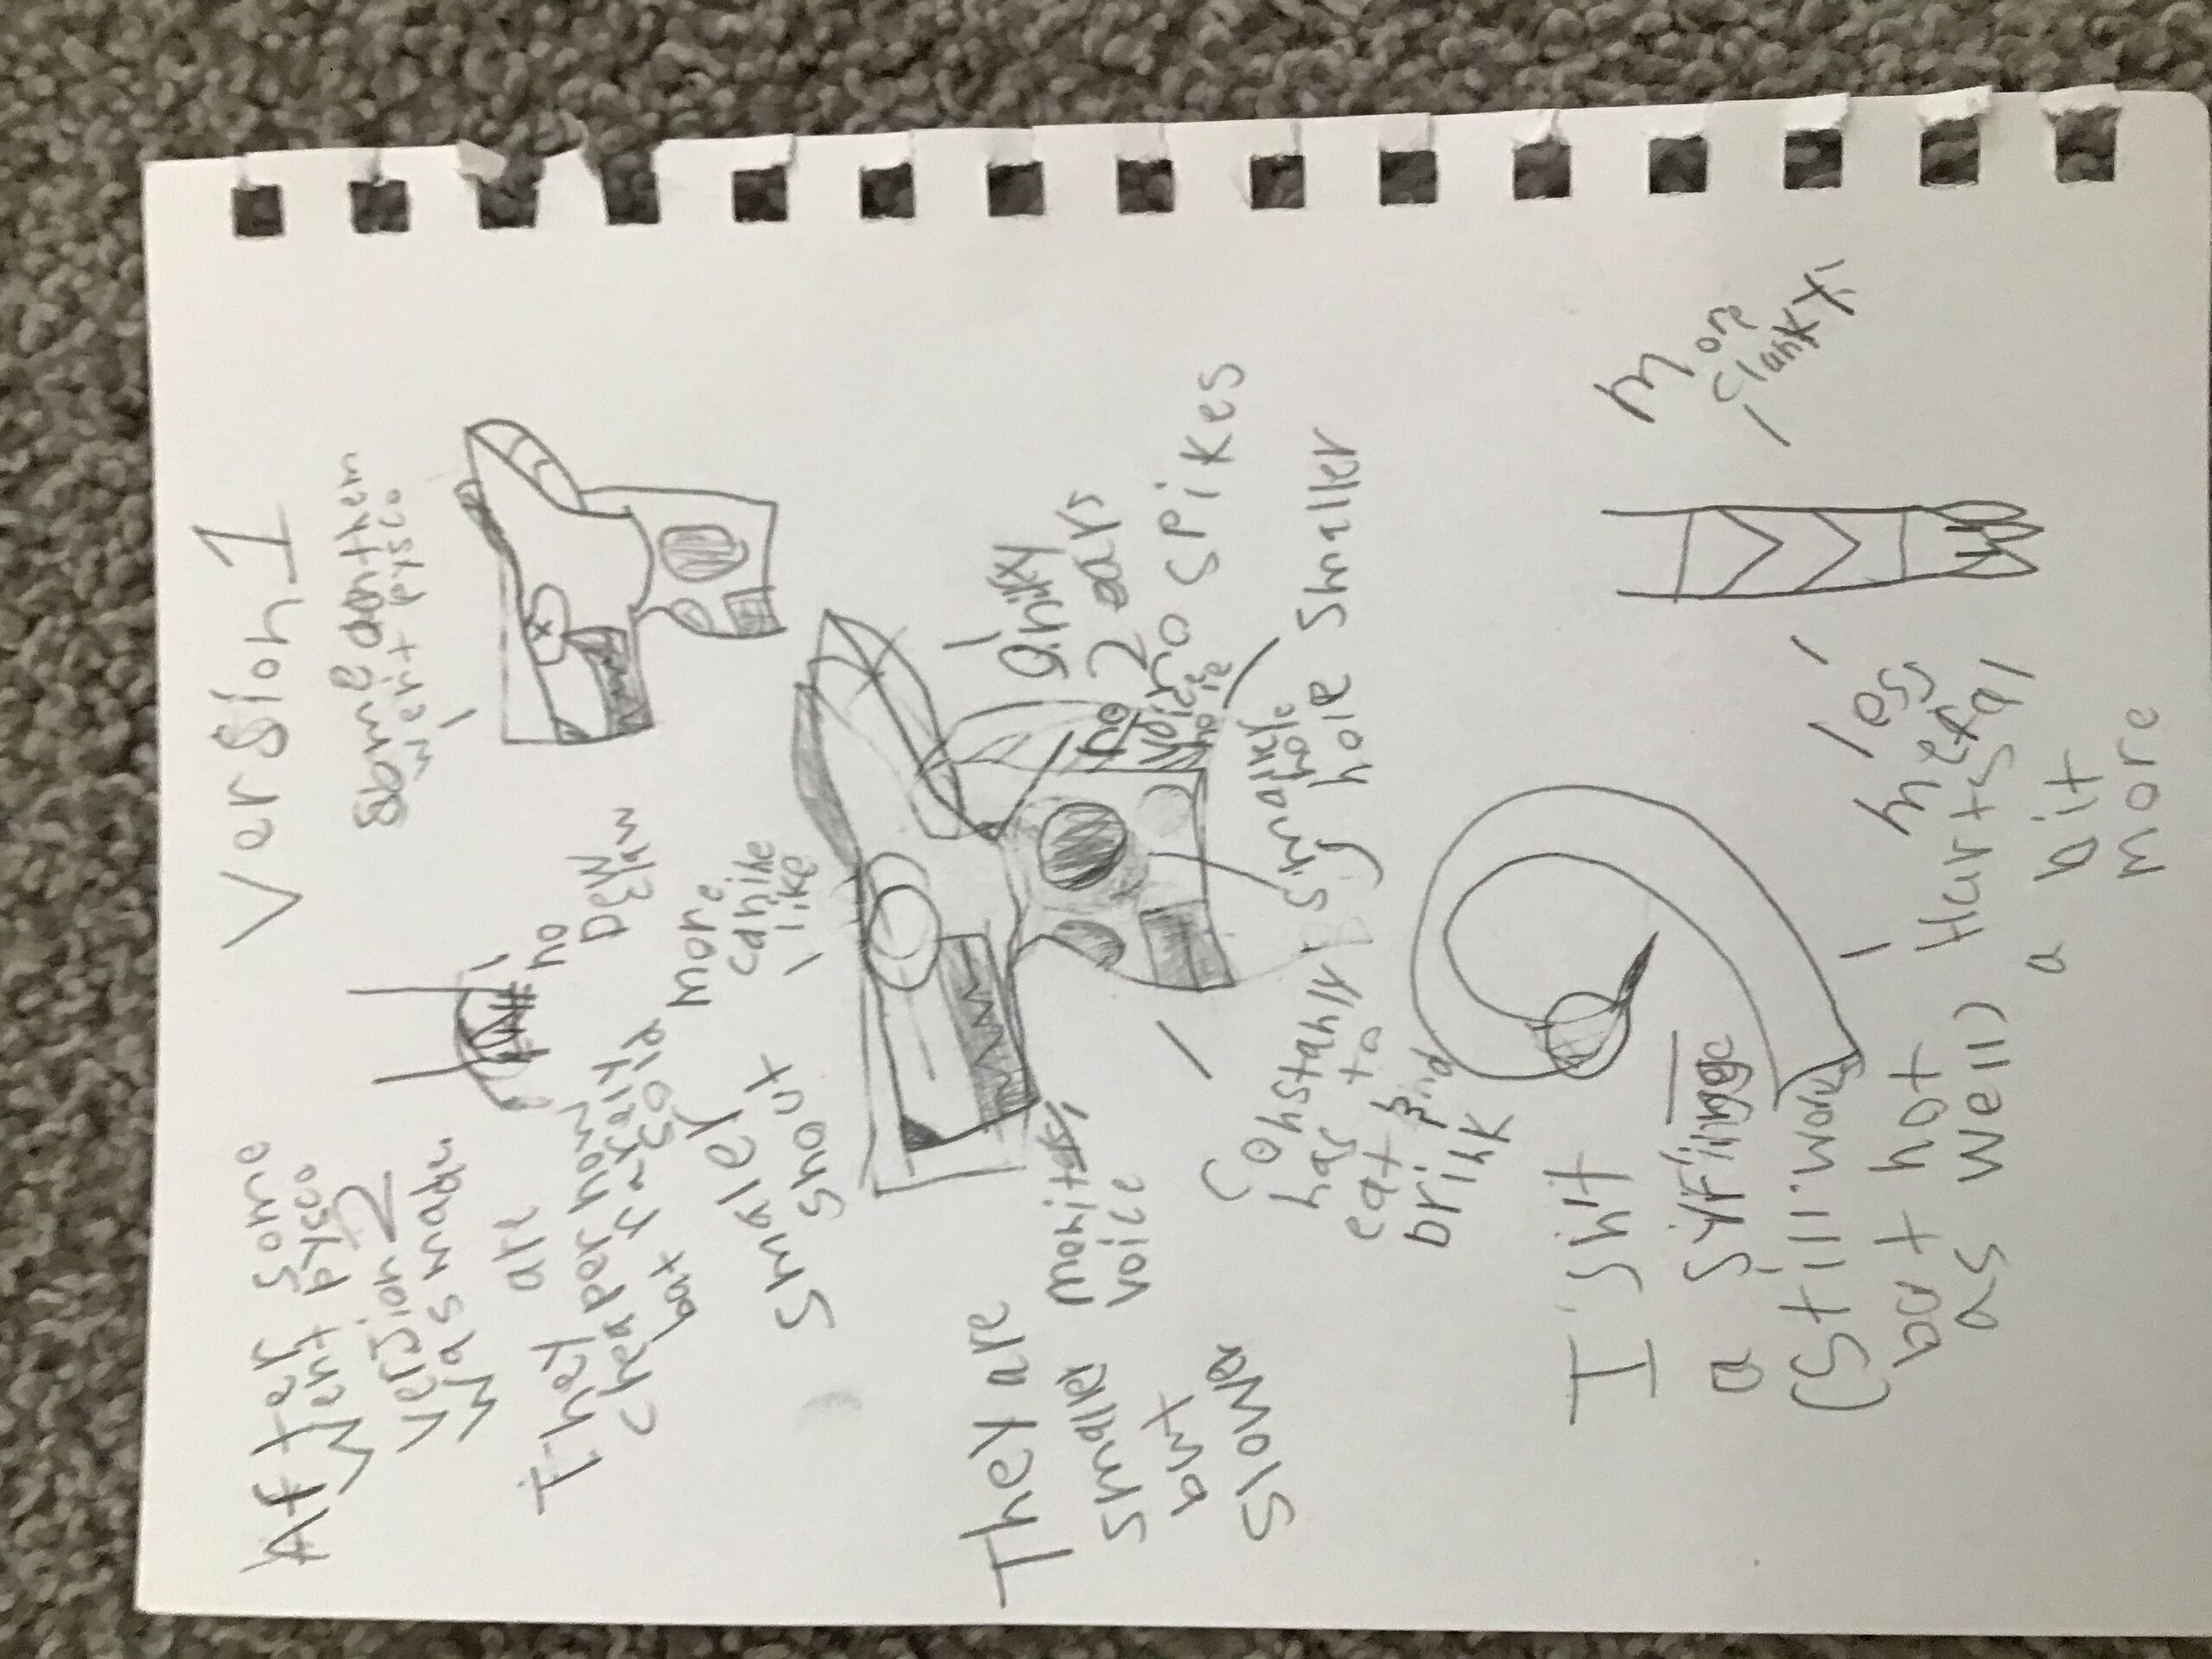 Version 1
After some
went pysco
version 2
was made
They are
chaper now
but rarely
sold
Some of them
went pysco
no
DEW
Claw
more
canine
like
smaler
snout
Only
2 ears
no spikes
Voice
hole
smaller
hole
hole smaller
They are
smaller
but
slower
voice
Constanly
has to
eat and
brink
Isn't
a syringe
(Still works
but not
as well)
Hurts
a bit
more
less
metal
More
Clanky